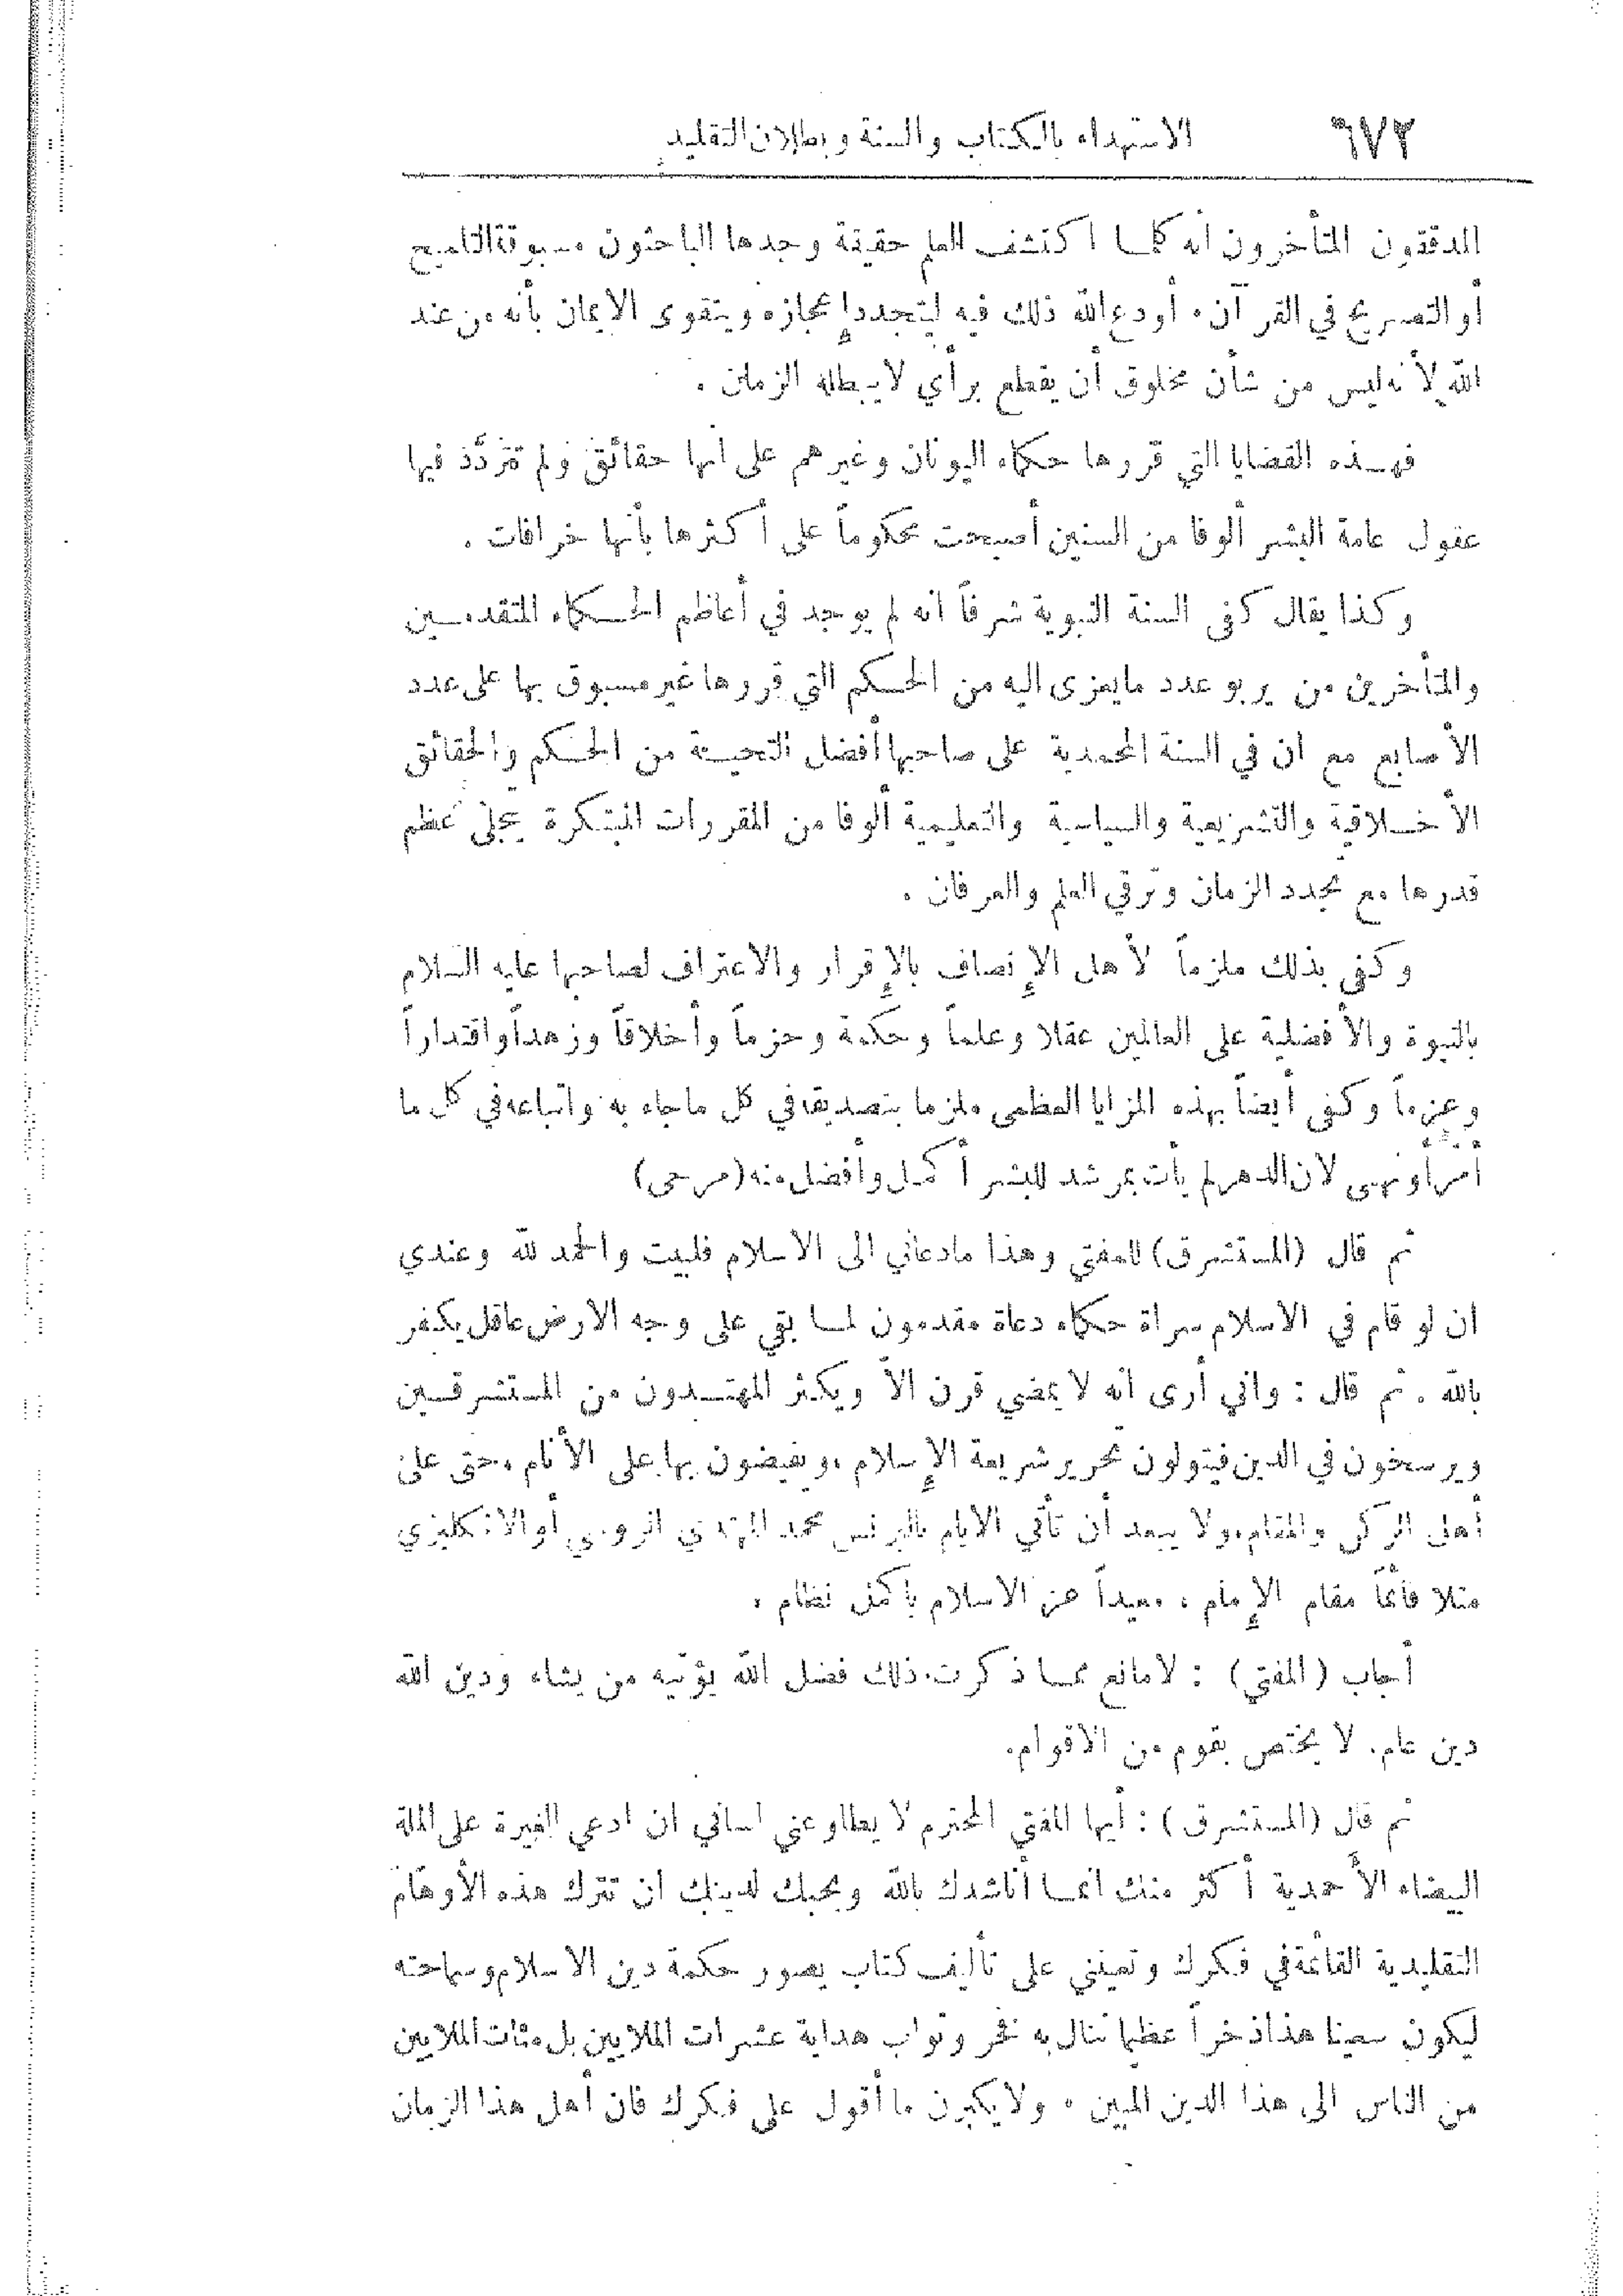 ٦٧٢ الاستهداء بالكتاب والسنة وبطلان التقليد
المدققون المتأخرون أنه كلما اكتشف العلم حقيقة وجدها الباحثون مسبوقة التلميح
أو التصريح في القرآن. أودع الله ذلك فيه ليتجدد إعجازه ويتقوى الايمان بأنه من عند
الله لأنه ليس من شأن مخلوق أن يقطع برأي لا يبطله الزمان .
فهذه القضايا التي قررها حكماء اليونان وغيرهم على انها حقائق ولم تتردد فيها
عقول عامة البشر ألوفا من السنين أصبحت محكوماً على أكثرها بأنها خرافات .
وكذا يقال كفى السنة النبوية شرفاً انه لم يوجد في أعاظم الحكماء المتقدمين
والمتأخرين من يربو عدد ما يعزى اليه من الحكم التي قررها غير مسبوق بها على عدد
الأصابع مع ان في السنة المحمدية على صاحبها أفضل التحية من الحكم والحقائق
الأخلاقية والتشريعية والسياسية والتعليمية ألوفا من المقررات المبتكرة يجلى عظم
قدرها مع تجدد الزمان وترقي العلم والعرفان .
وكفى بذلك ملزماً لأهل الإنصاف بالإقرار والاعتراف لصاحبها عليه السلام
بالنبوة والأفضلية على العالمين عقلا وعلماً وحكمة وحزماً وأخلاقاً وزهداً واقتداراً
وعزماً وكفى أيضاً بهذه المزايا العظمى ملزما بتصديقه في كل ما جاء به واتباعه في كل ما
أمر أو نهى لان الدهر لم يأت بمرشد للبشر أكمل وأفضل منه (مرحى)
ثم قال (المستشرق) للمفتي وهذا ما دعاني الى الاسلام فلبيت والحمد لله وعندي
ان لو قام في الاسلام سراة حكماء دعاة مقدمون لما بقي على وجه الارض عاقل يكفر
بالله . ثم قال : واني أرى انه لا يمضي قرن الاّ ويكثر المهتدون من المستشرقين
ويرسخون في الدين فيتولون تحرير شريعة الإسلام، ويفيضون بها على الأنام، حتى على
أهل الركن والمقام، ولا يبعد أن تأتي الايام بالبرنس محمد المهتدي الروسي أو الانكليزي
مثلا قائماً مقام الإمام ، معيداً عز الاسلام بأكمل نظام .
أجاب (المفتي) : لا مانع مما ذكرت. ذلك فضل الله يؤتيه من يشاء ودين الله
دين عام. لا يختص بقوم من الاقوام.
ثم قال (المستشرق) : أيها المفتي المحترم لا يطاوعني لساني ان ادعي الغيرة على الملة
البيضاء الأحمدية أكثر منك انما أناشدك بالله وبحبك لدينك ان تترك هذه الأوهام
التقليدية القائمة في فكرك وتعينني على تأليف كتاب يصور حكمة دين الاسلام وسماحته
ليكون سعينا هذا ذخراً عظيما ننال به فخر وثواب هداية عشرات الملايين بل مئات الملايين
من الناس الى هذا الدين المبين . ولا يكبرن ما أقول على فكرك فان أهل هذا الزمان